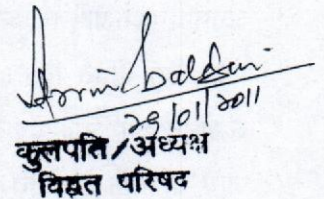 29/01/2011
कुलपति/अध्यक्ष
विद्वत परिषद